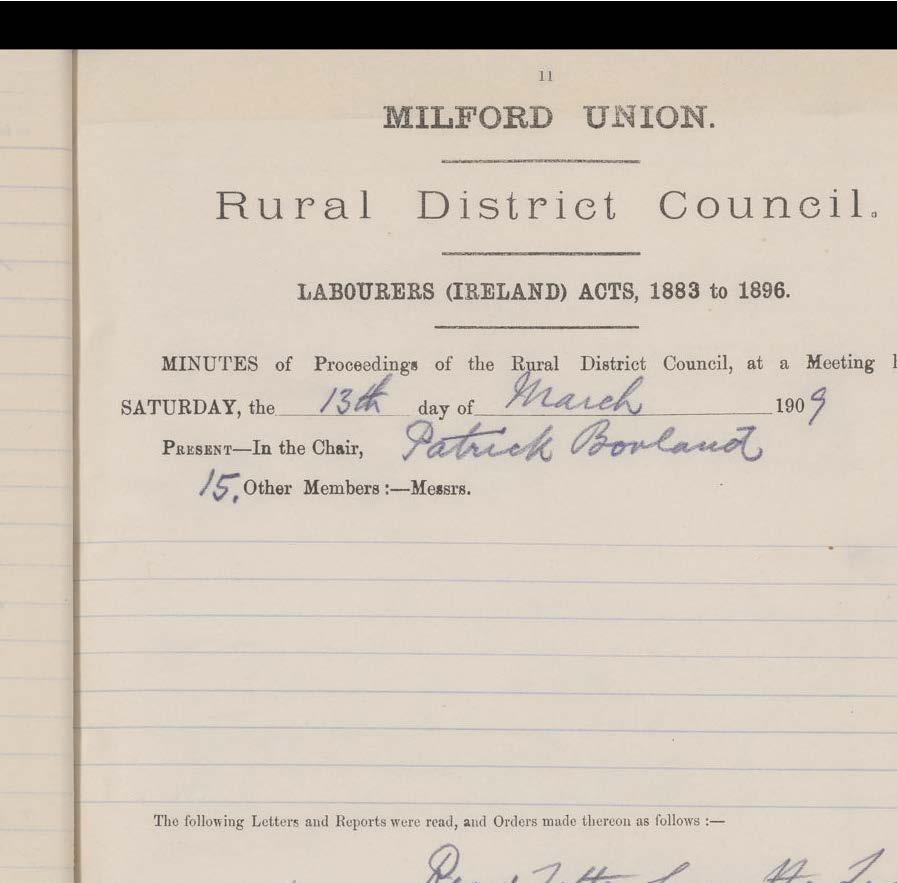 11
MILFORD UNION.
Rural District Council.
LABOURERS (IRELAND) ACTS, 1883 to 1896.
MINUTES of Proceedings of the Rural District Council, at a Meeting
SATURDAY, the 13th day of March 1909
PRESENT—In the Chair, Patrick Bovland
15. Other Members :—Messrs.
The following Letters and Reports were read, and Orders made thereon as follows :—